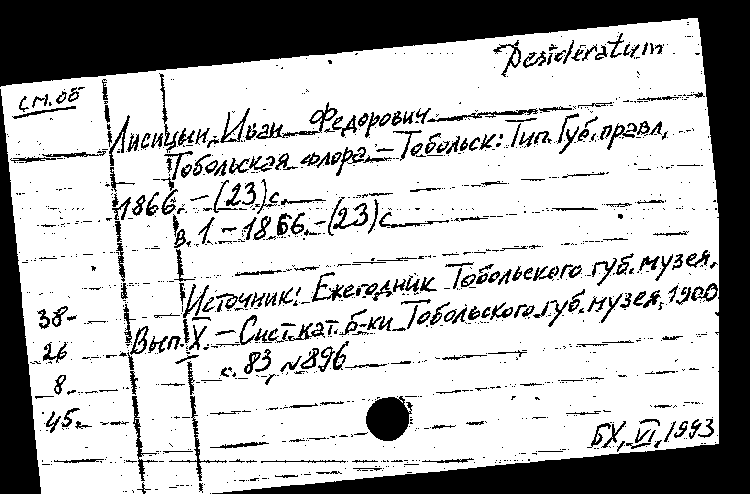 Desideratum
см.об
Лисицын, Иван Федорович
Тобольская флора. - Тобольск: Тип. Губ. правл,
1866. - (23)с.
в. 1 - 1866. - (23)с
Источник: Ежегодник Тобольского губ. музея,
38-
Вып. X. - Сист. кат. б-ки Тобольского губ. музея, 1900
26
с. 83, №896
8.
45.
БХ, VI, 1993